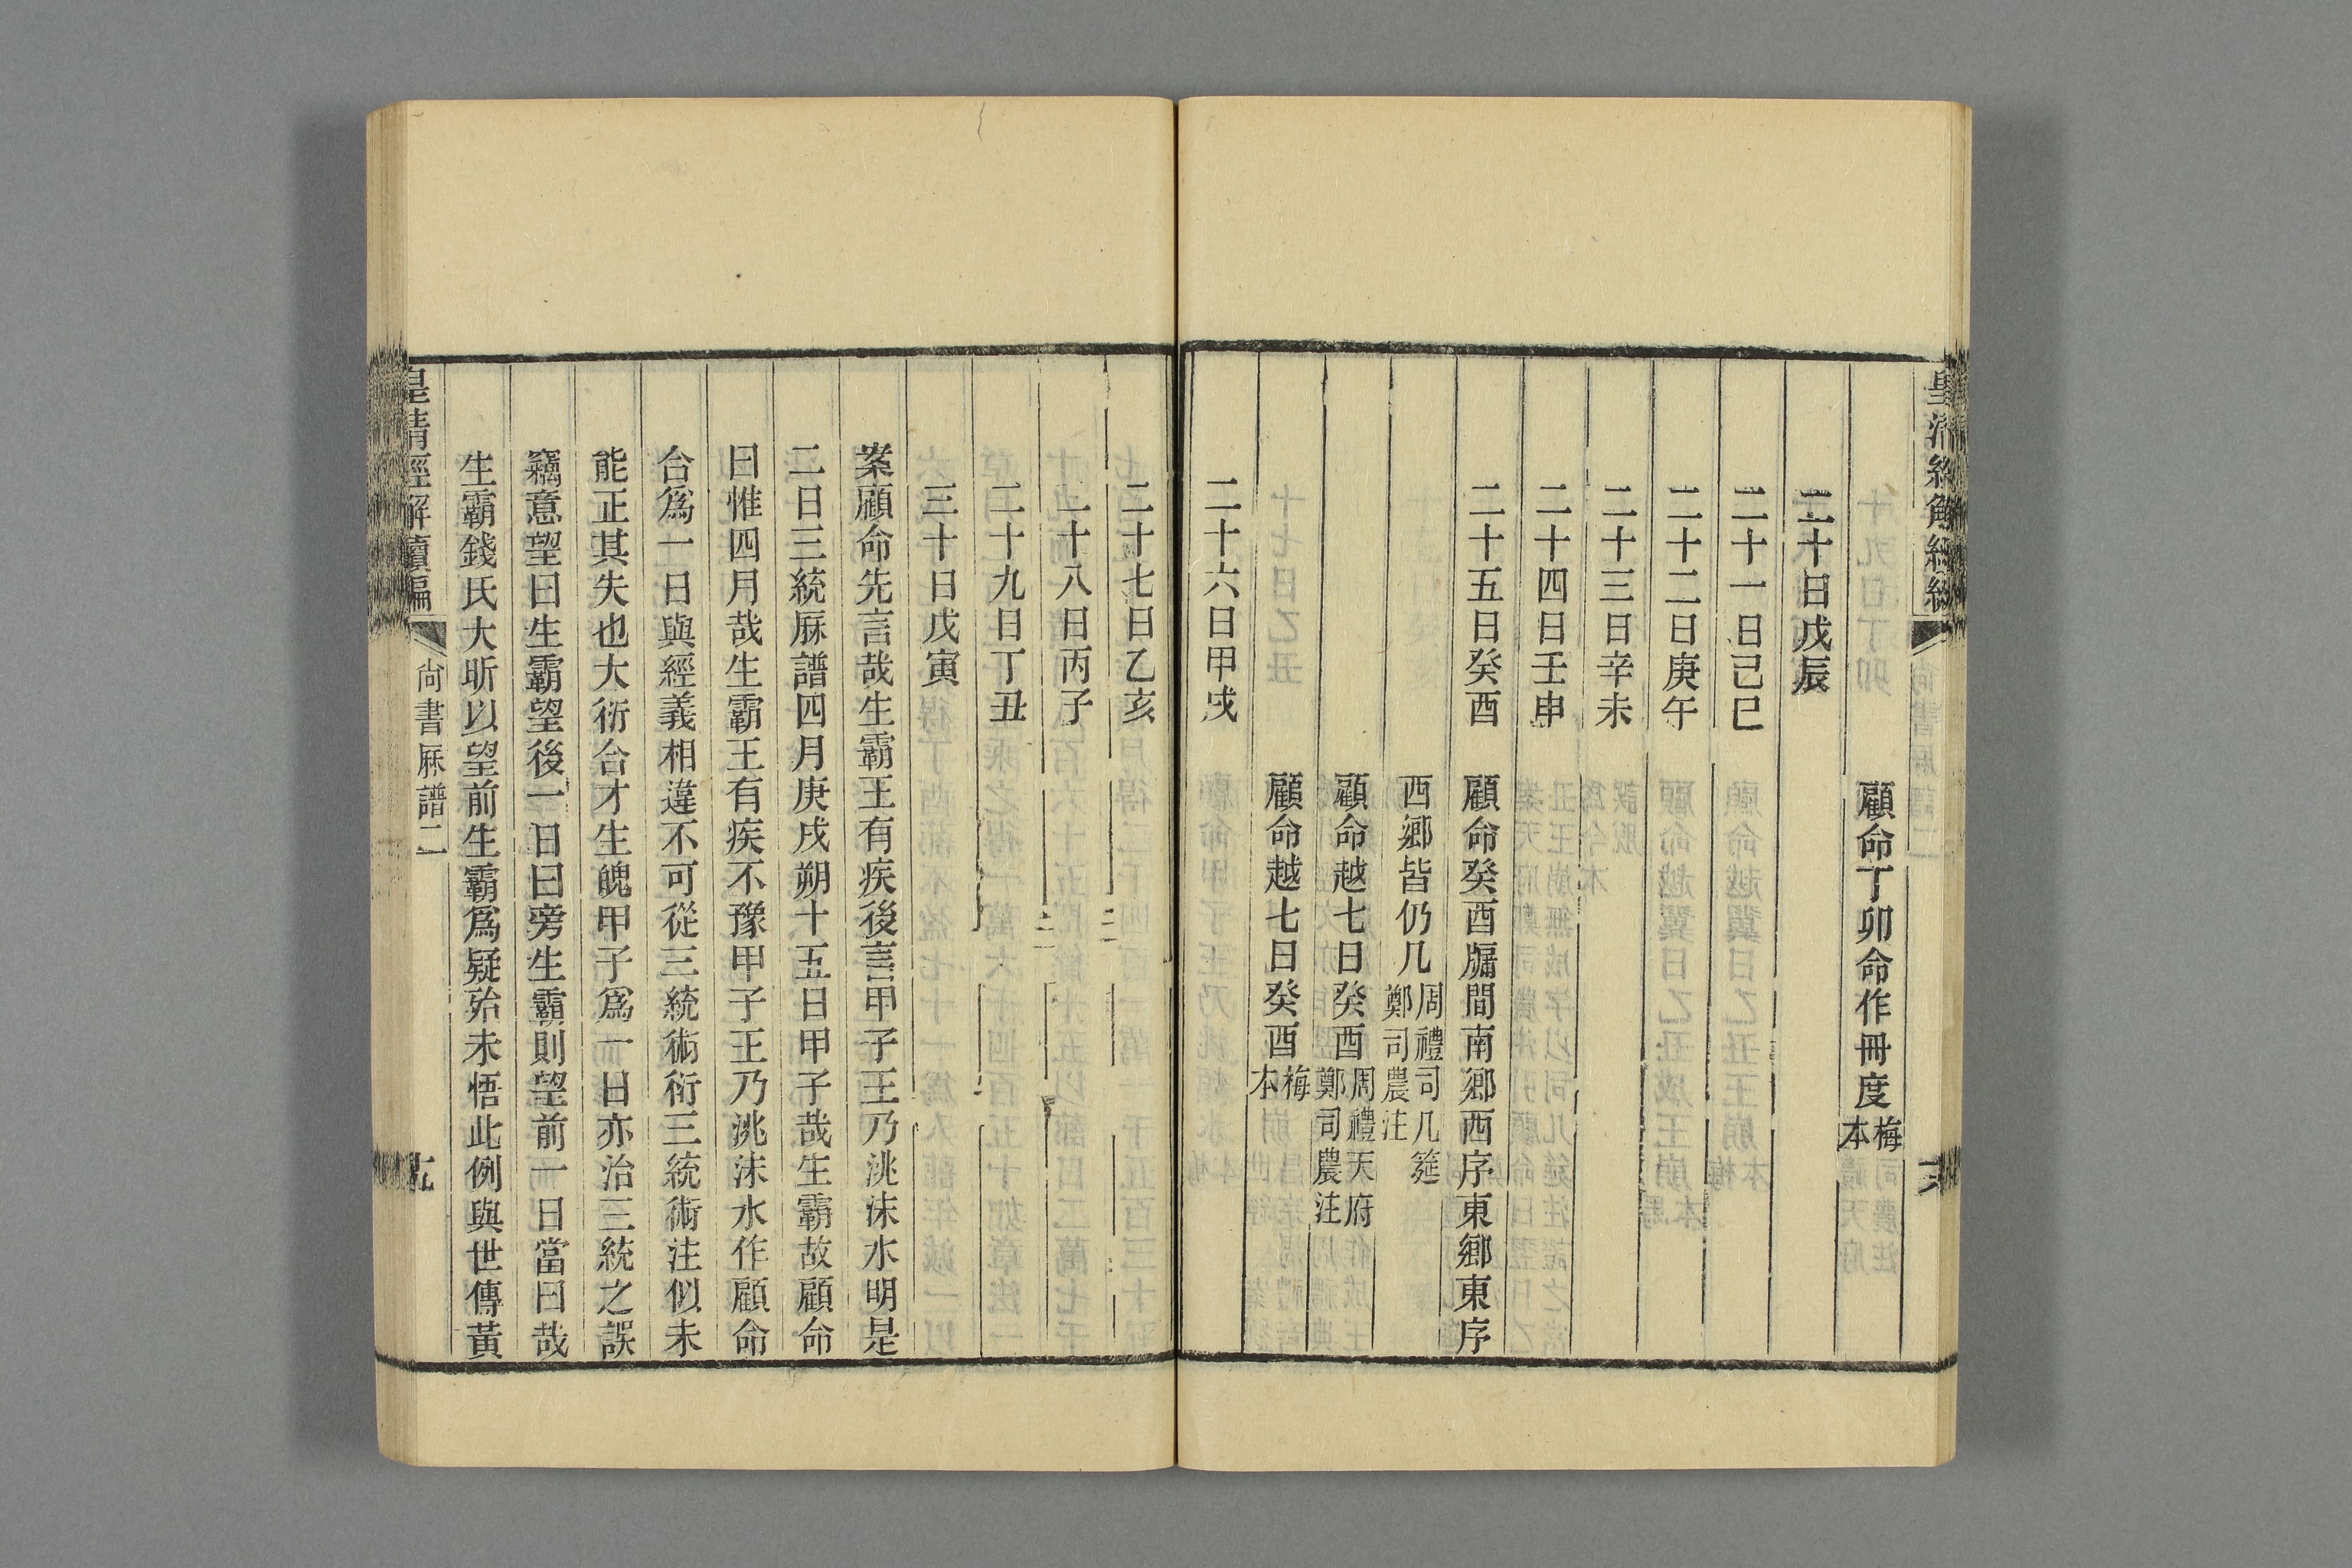 顧命丁卯命作冊度梅本
二十日戊辰
二十一日己巳
二十二日庚午
二十三日辛未
二十四日壬申
二十五日癸酉　顧命癸酉牖間南鄉西序東鄉東序
西鄉皆仍几周禮司几筵鄭司農注
顧命越七日癸酉周禮天府鄭司農注
顧命越七日癸酉梅本
二十六日甲戌
二十七日乙亥
二十八日丙子
二十九日丁丑
三十日戊寅
案顧命先言哉生霸王有疾後言甲子王乃洮沬水明是
二日三統厤譜四月庚戌朔十五日甲子哉生霸故顧命
曰惟四月哉生霸王有疾不豫甲子王乃洮沬水作顧命
合爲一日與經義相違不可從三統術衍三統術注似未
能正其失也大衍合才生魄甲子爲一日亦治三統之誤
竊意望曰生霸望後一日曰旁生霸則望前一日當曰哉
生霸錢氏大昕以望前生霸爲疑殆未悟此例與世傳黃
皇清經解續編　尚書厤譜二